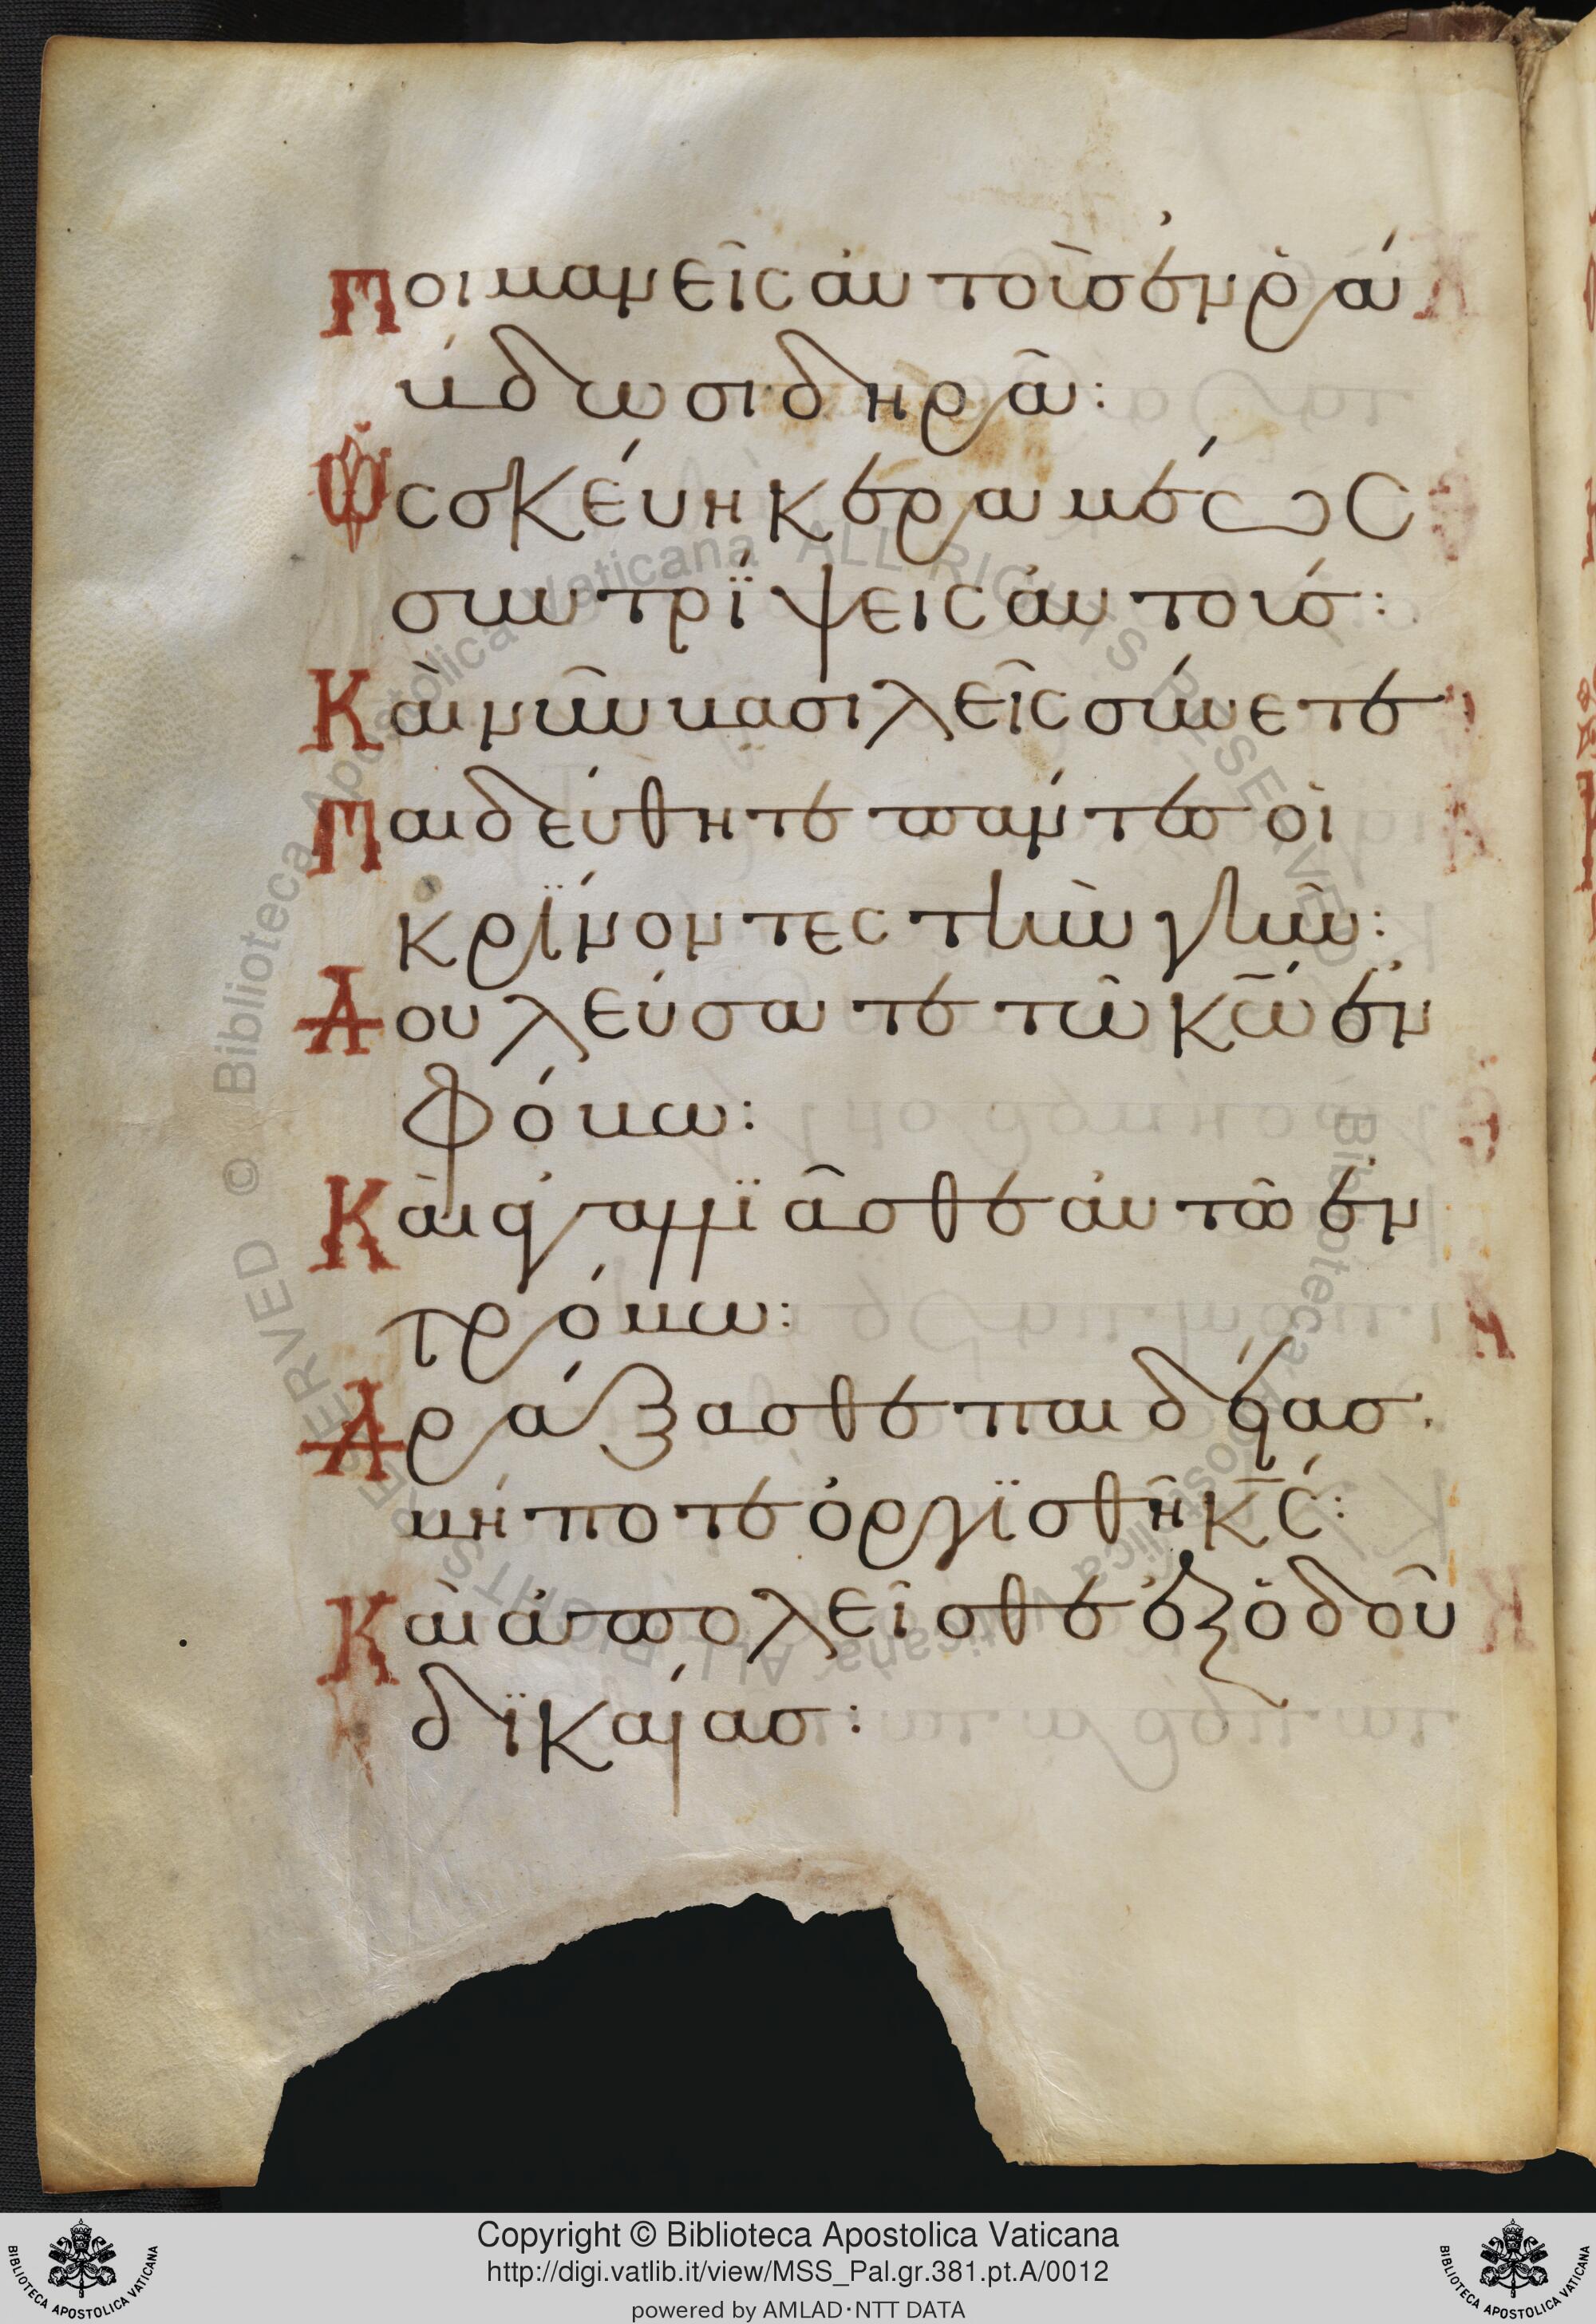 Ποιμανεῖς αὐτοὺσ ἐν ῥά
βδω σιδηρᾶ:
Ὡς σκέυη κεραμέως
συντρίψεις αὐτούσ:
Καὶ νῦν βασιλεῖς σύνετε
Παιδεύθητε πάντεσ οἱ
κρίνοντες τὴν γῆν:
Δουλεύσατε τῶ κῶ ἐν
φόβω:
Καὶ ἀγαλλιᾶσθε ἀυτῶ ἐν
τρόμω:
Δράξασθε παιδείασ.
μήποτε ὀργισθῆ κς:
Καὶ ἀπολεῖσθε ἐξ ὁδοῦ
δικαίασ:
© Biblioteca Apostolica Vaticana ALL RIGHTS RESERVED
© Biblioteca Apostolica Vaticana ALL RIGHTS RESERVED
Copyright © Biblioteca Apostolica Vaticana
http://digi.vatlib.it/view/MSS_Pal.gr.381.pt.A/0012
powered by AMLAD·NTT DATA
BIBLIOTECA APOSTOLICA VATICANA
BIBLIOTECA APOSTOLICA VATICANA